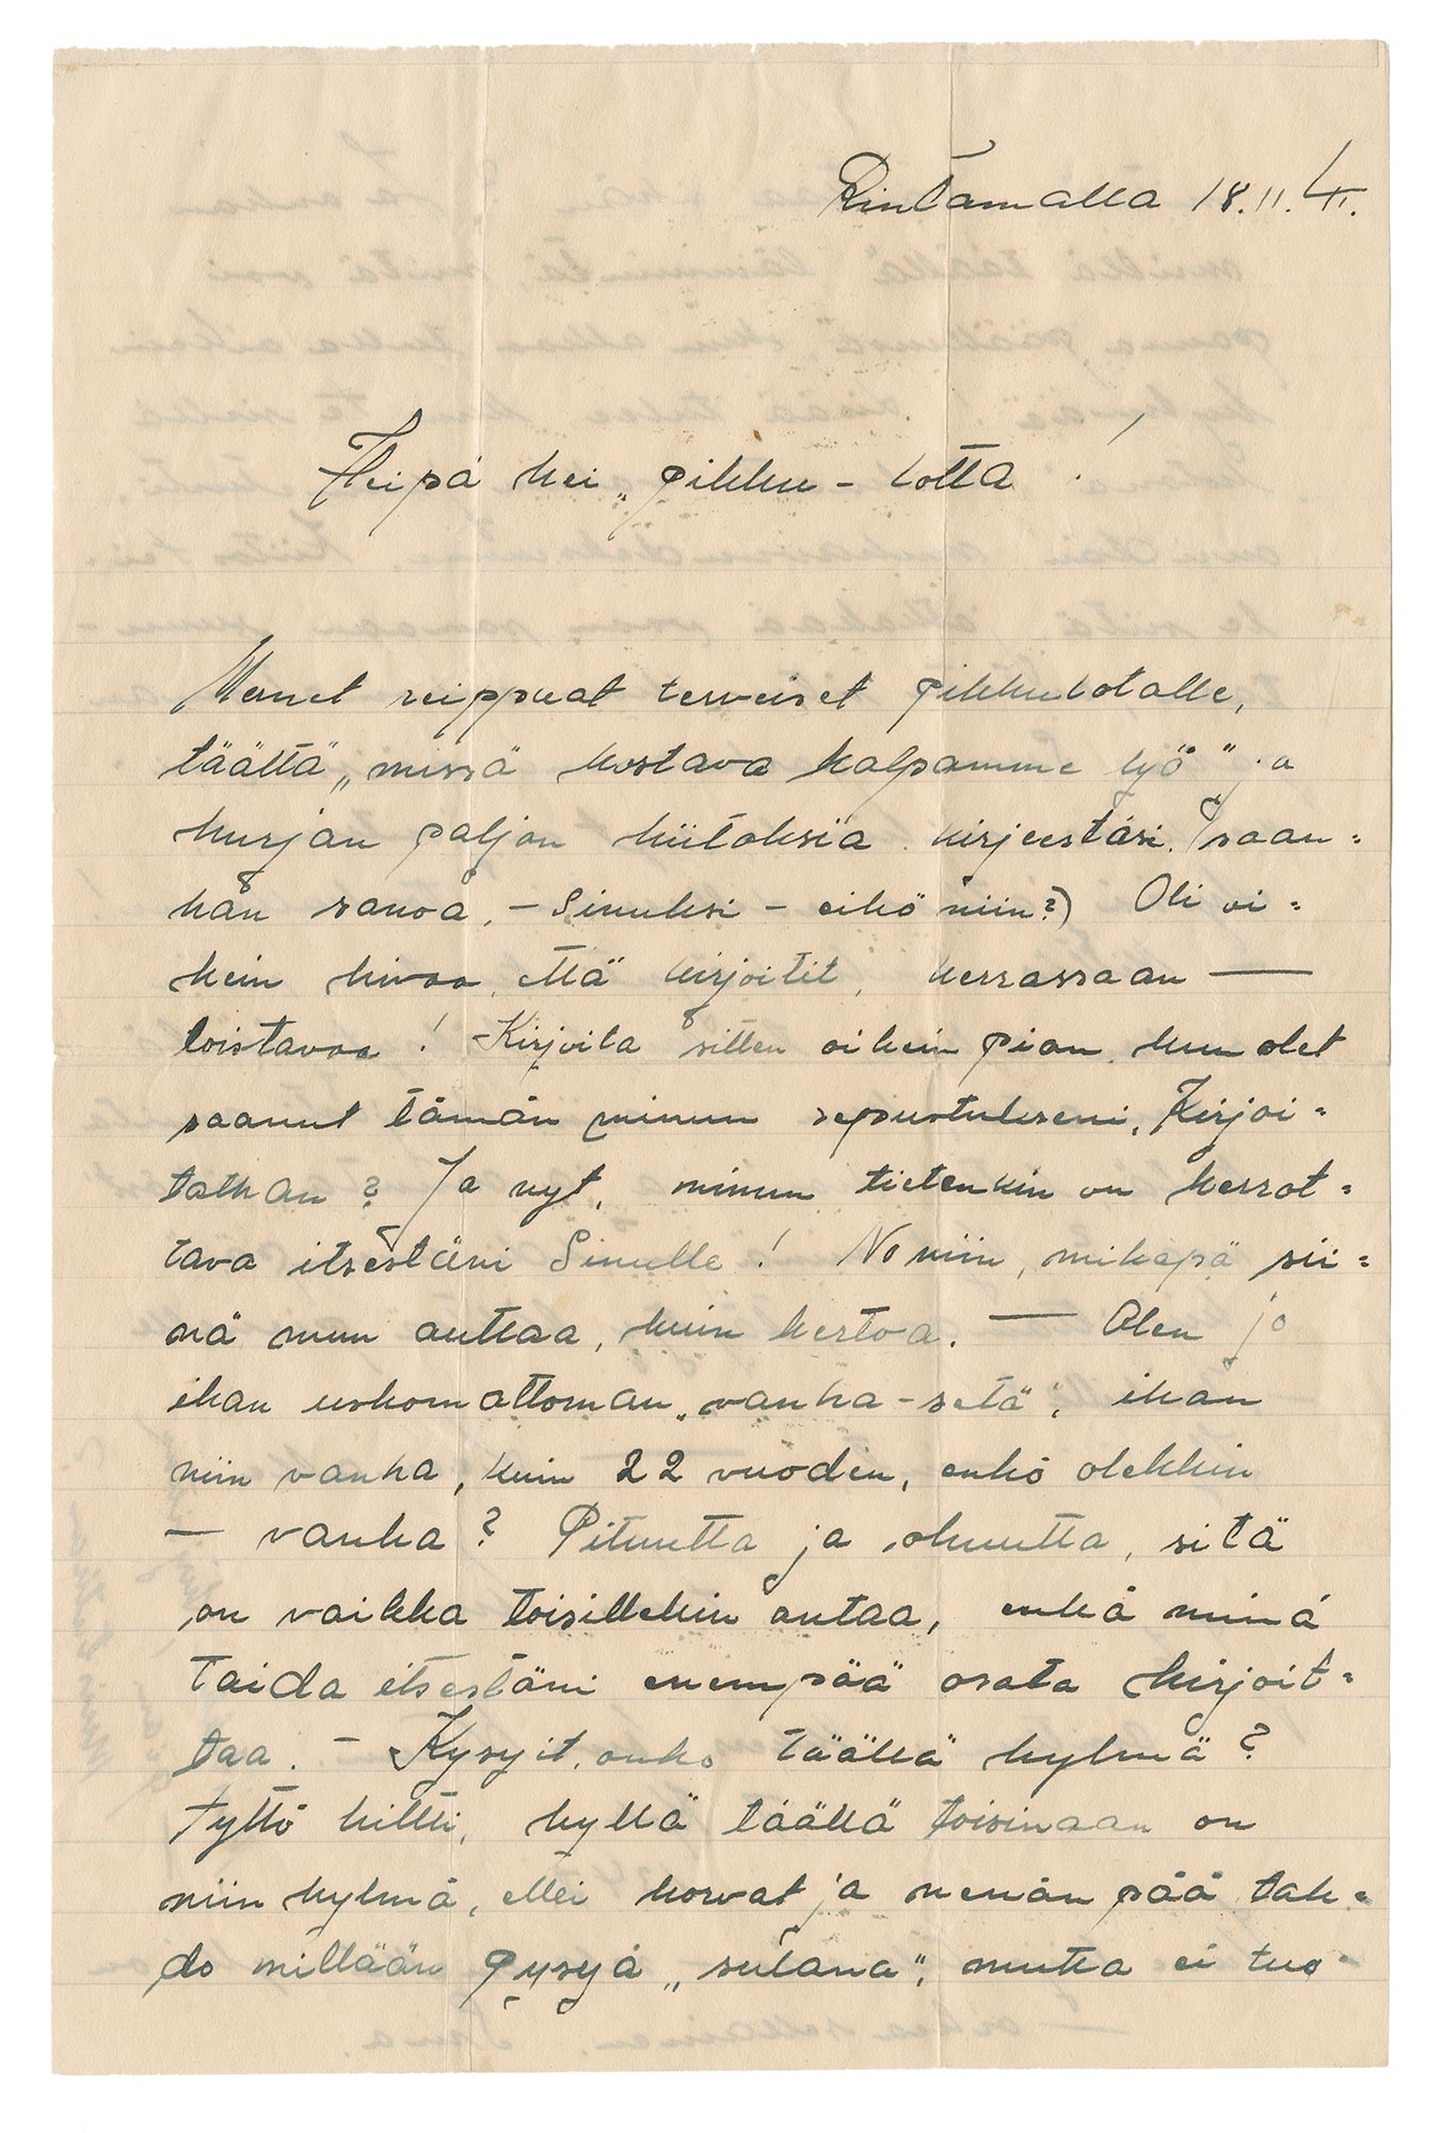 Rintamalla 18.11.41.
Heipä hei „pikku-lotta!
Monet reippaat terveiset pikkulotalle,
täältä „missä kostava kalpamme lyö" ja
hurjan paljon kiitoksia kirjeestäsi. (saan=
hän sanoa, - Sinuksi - eikö niin?) Oli oi=
kein kivaa, että kirjoitit, kerrassaan —
loistavaa! - Kirjoita sitten oikein pian kun olet
saanut tämän minun sepustukseni, Kirjoi=
tathan? Ja nyt, minun tietenkin on kerrot=
tava itsestäni Sinulle! No niin, mikäpä sii=
nä muu auttaa, kuin kertoa. — Olen jo
ihan uskomattoman „vanha-setä", ihan
niin vanha, kuin 22 vuoden, enkö olekkin
— vanha? Pituutta ja ohuutta, sitä
on vaikka toisillekin antaa, enkä minä
taida itsestäni enempää osata kirjoit=
taa. - Kysyit, onko täällä kylmä?
Tyttö kiltti, kyllä täällä toisinaan on
niin kylmä, ettei korvat ja nenän pää tah=
do millään pysyä „sulana", mutta ei tuo